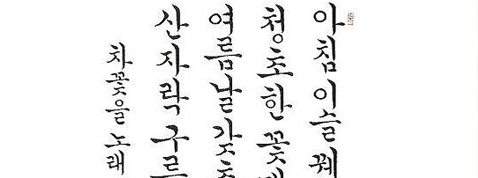 아침 이슬 꿰
청초한 꽃
여름날 갖
산자락 구
차꽃을 노래